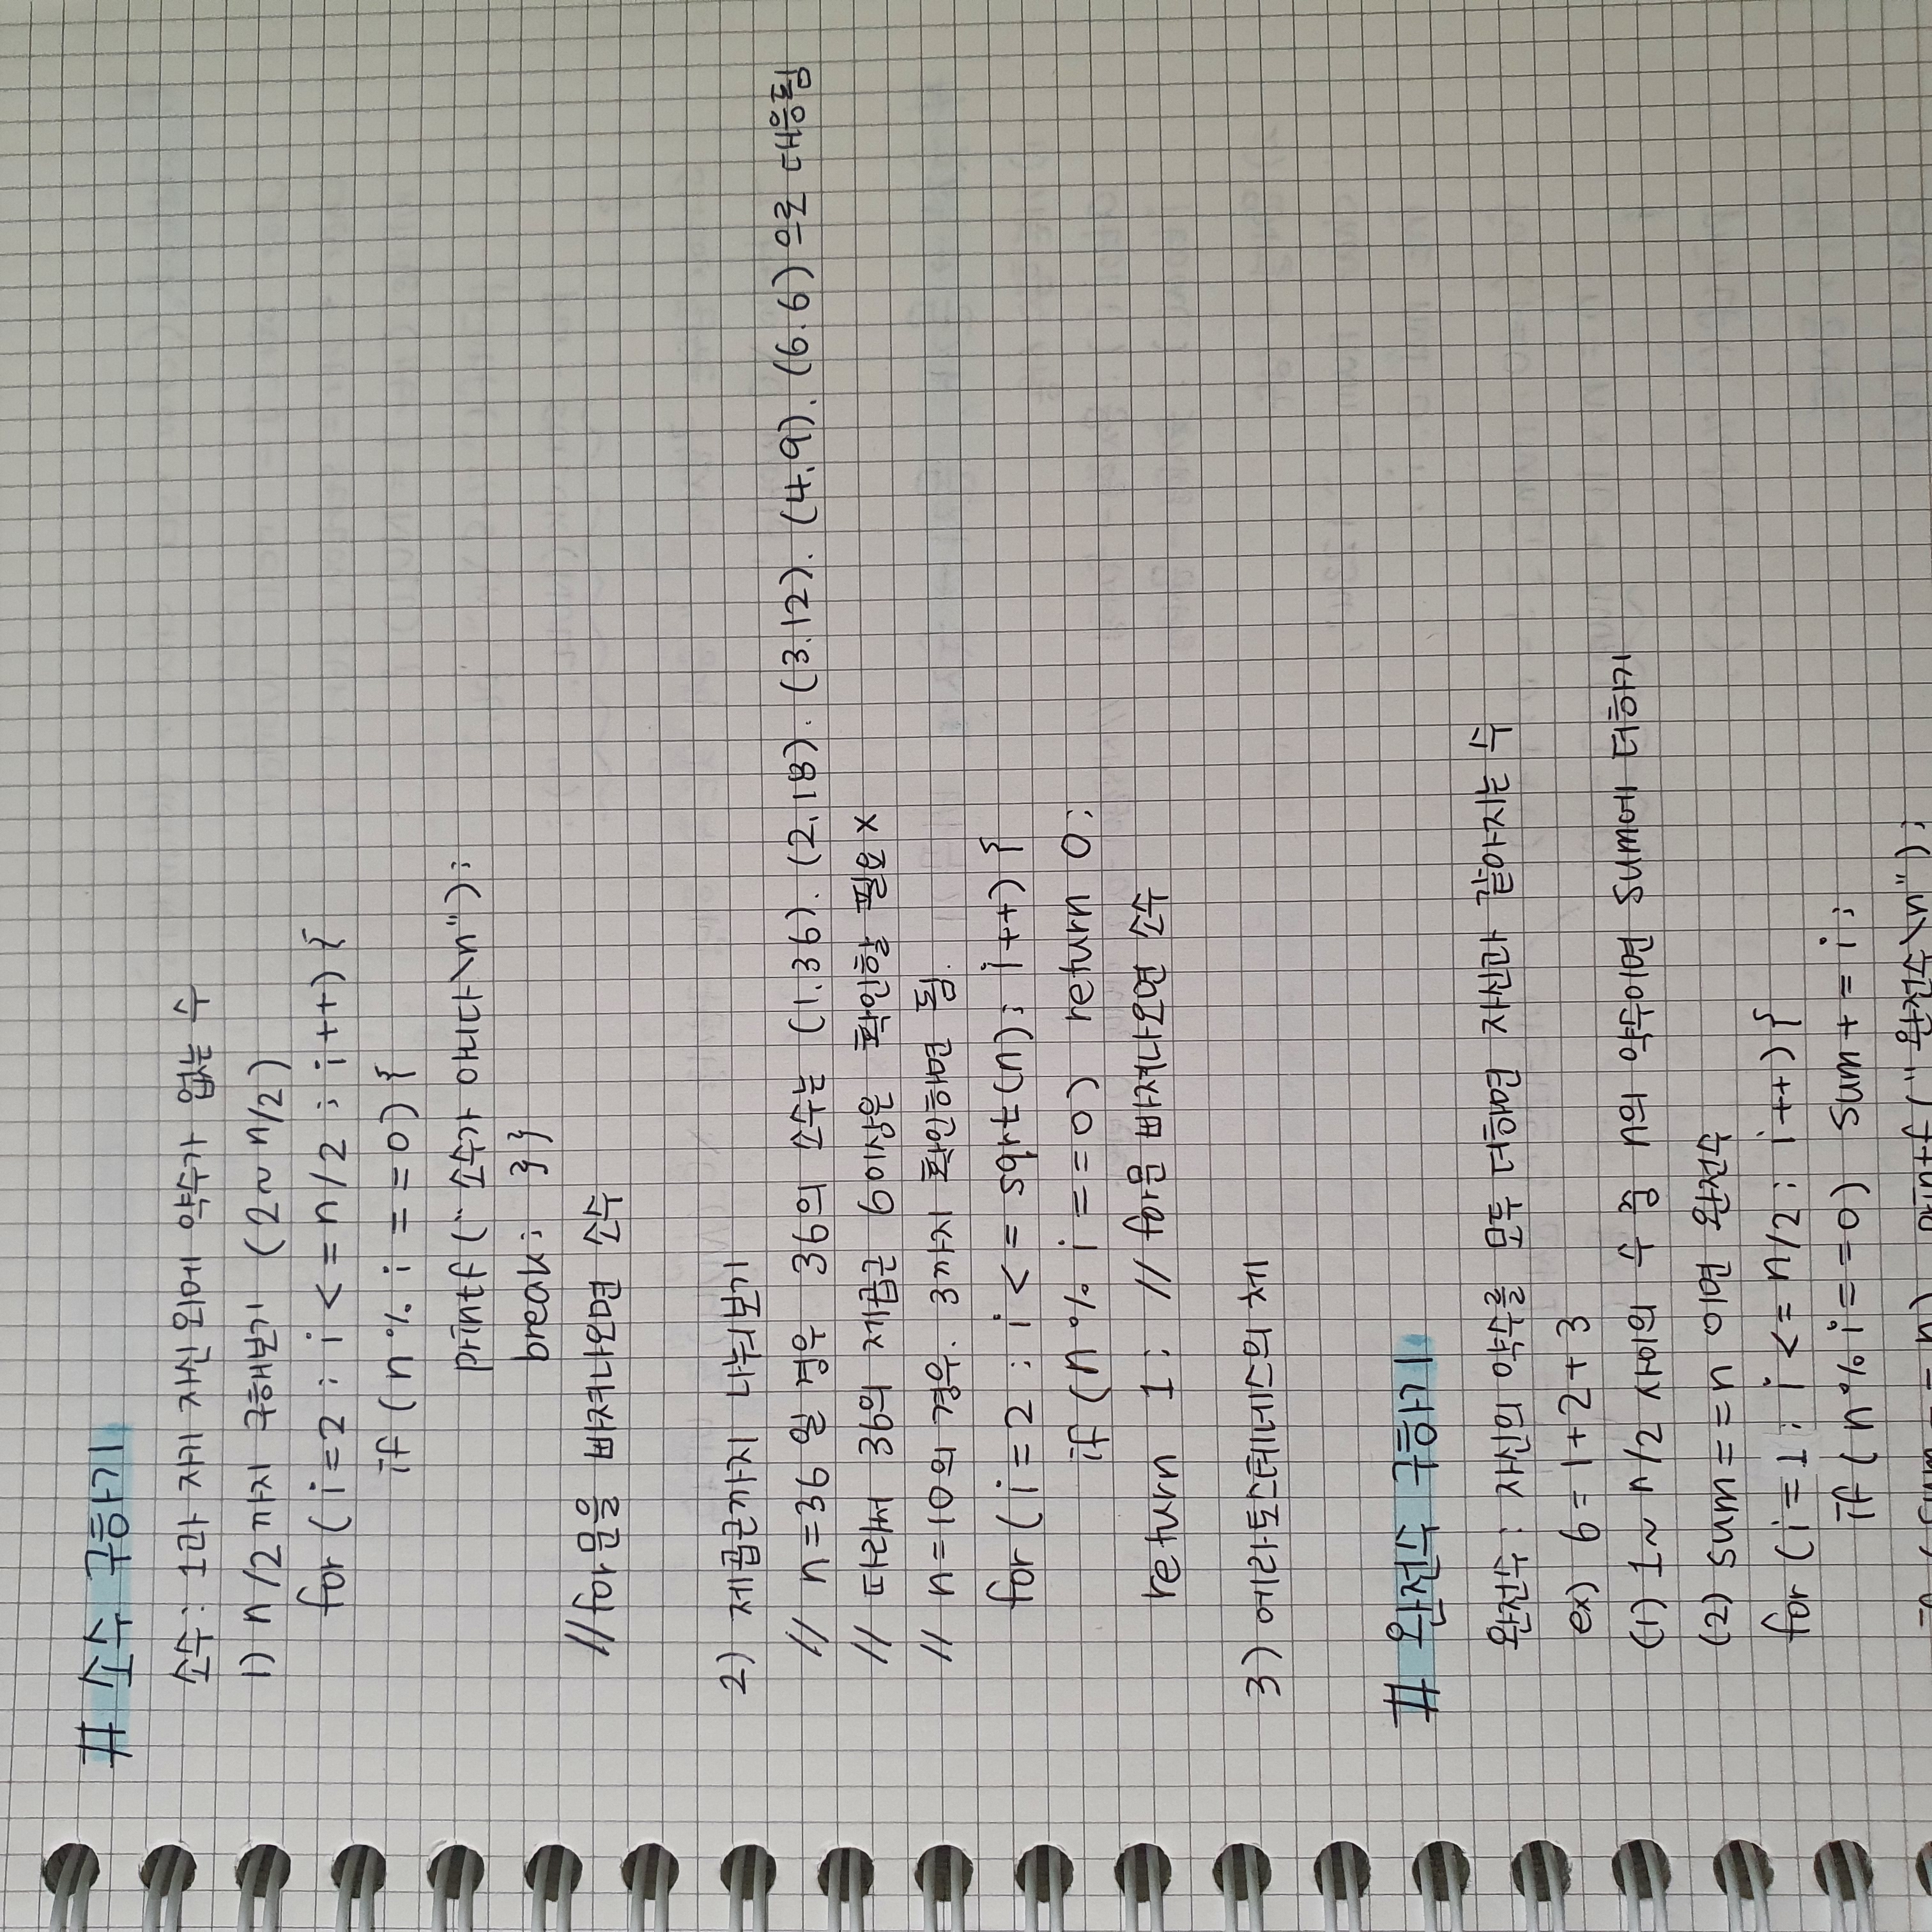 # 소수 구하기
소수 : 1과 자기 자신 외에 약수가 없는 수
1) n/2 까지 구해보기 (2~ n/2)
for ( i=2 ; i <= n/2 ; i++) {
if ( n % i == 0) {
printf (" 소수가 아니다\n") ;
break; } }
// for문을 빠져나오면 소수
2) 제곱근까지 나눠보기
// n=36 일 경우 36의 소수는 (1,36), (2,18), (3,12), (4,9), (6,6) 으로 대응됨
// 따라서 36의 제곱근 6이상은 확인할 필요 x
// n=10의 경우, 3까지 확인하면 됨.
for ( i=2 ; i <= sqrt(n) ; i++) {
if (n % i == 0) return 0;
return 1; // for문 빠져나오면 소수
3) 에라토스테네스의 체
# 완전수 구하기
완전수 : 자신의 약수를 모두 더하면 자신과 같아지는 수
ex) 6 = 1+2+3
(1) 1~ n/2 사이의 수 중 n의 약수이면 sum에 더하기
(2) sum==n 이면 완전수
for ( i=1 ; i <= n/2 ; i++) {
if ( n % i == 0) sum += i ;
if ( sum == n) printf (" 완전수\n") ;